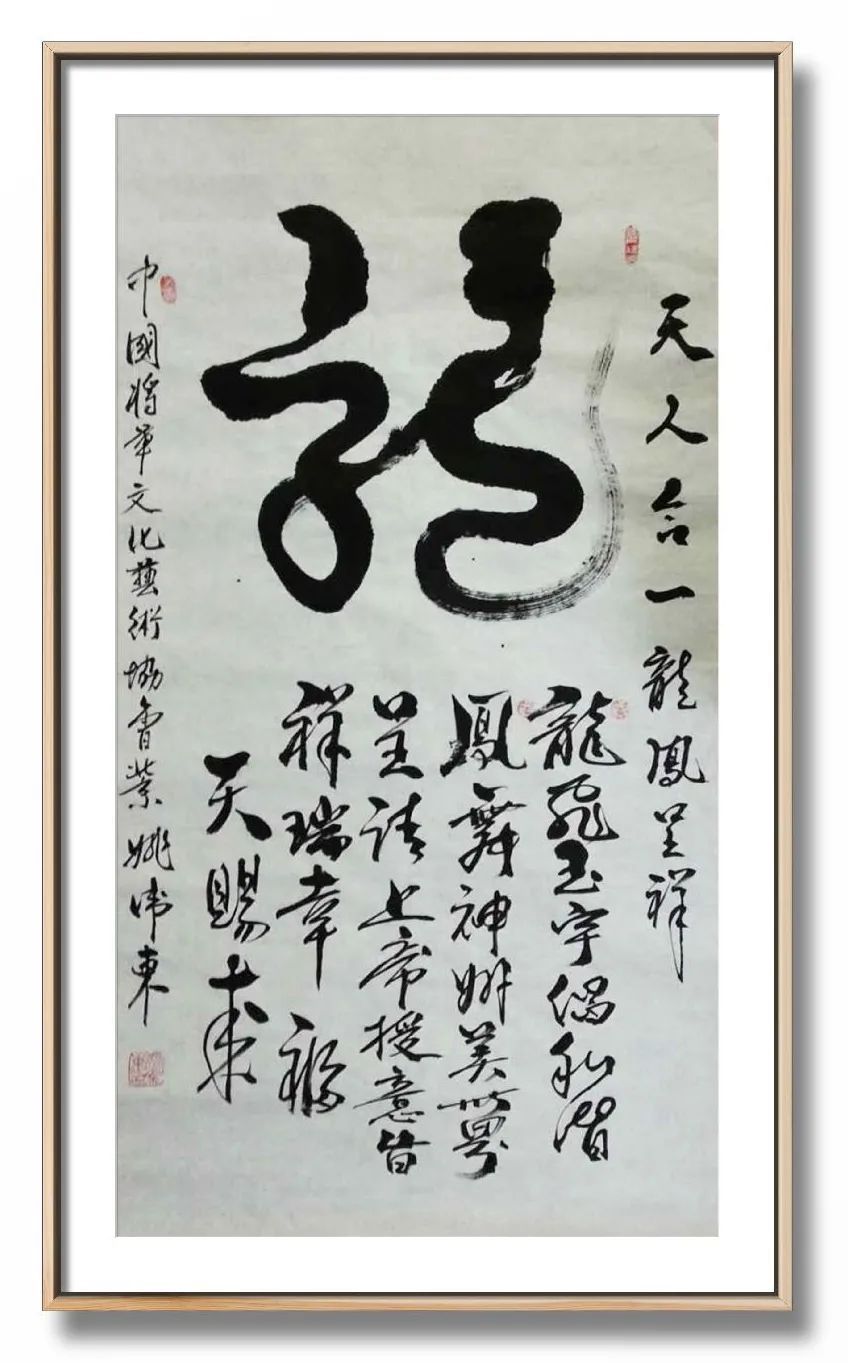 天人合一龍鳳呈祥
龍
龍飛玉宇偶和谐
鳳舞神州美世界
呈請上帝授意旨
祥瑞幸福
天賜來
中國將軍文化藝術協會姚偉東